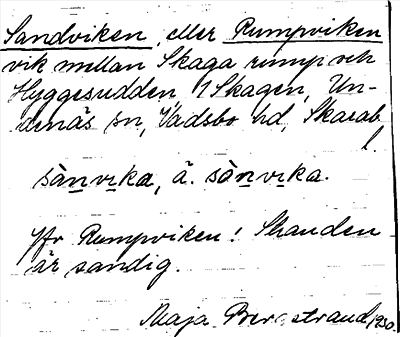 Sandviken, eller Rumpviken
vik mellan Skaga rump och
Hyggesudden i Skagen, Un-
denäs sn, Vadsbo hd, Skarab
l.
sànvika, ä. sònvika.
Jfr Rumpviken! Stranden
är sandig.
Maja Bergstrand, 1930.